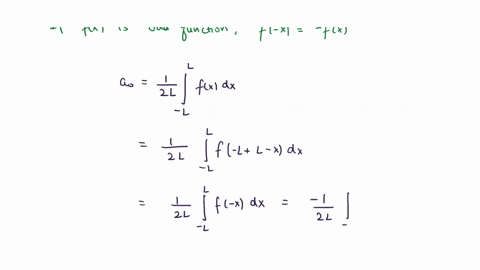 f(x) is odd function, f(-x) = -f(x)
a₀ = 1/2L ∫_{-L}^{L} f(x) dx
= 1/2L ∫_{-L}^{L} f(-L+L-x) dx
= 1/2L ∫_{-L}^{L} f(-x) dx = -1/2L ∫